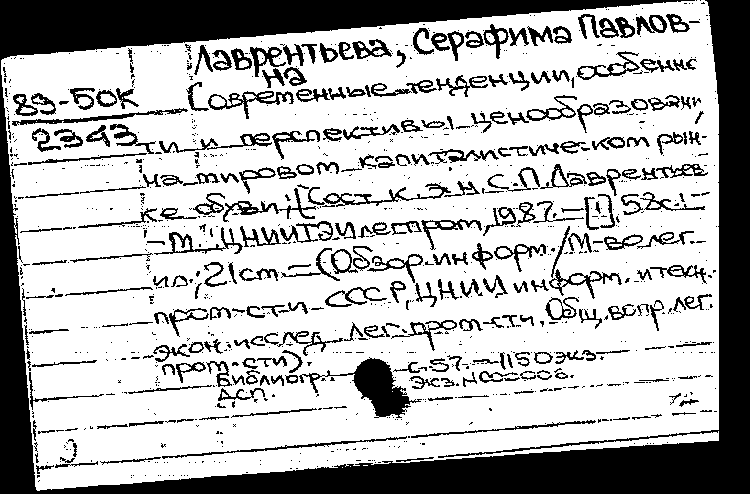 Лаврентьева, Серафима Павлов-
на
89-БОК
2343
Современные тенденции, особенно
сти и перспективы ценообразовани
на мировом капиталистическом рын-
ке обуви; [Сост. к. э. н. С. П. Лаврентьев
-М.: ЦНИИТЭИлегпром, 1987. - [1], 58с.:
ил.; 21см. - (Обзор. информ. / М-во лег.
пром-сти СССР, ЦНИИ информ. и техн.-
экон. исслед. лег. пром-сти. Общ. вопр. лег.
пром-сти).
Библиогр.: с. 57. - 1150экз.
ДСП. Экз. N000006.